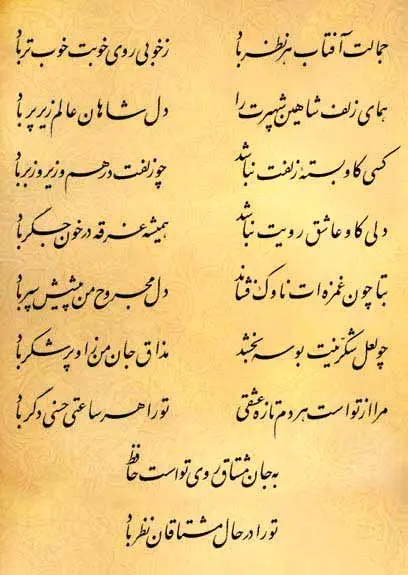 جمالت آفتاب هر نظر باد ز خوبی روی خوبت خوب تر باد
همای زلف شاهین شهپرت را دل شاهان عالم زیر پر باد
کسی کاو بستهٔ زلفت نباشد چو زلفت درهم و زیر و زبر باد
دلی کاو عاشق رویت نباشد همیشه غرقه در خون جگر باد
بتا چون غمزه‌ات ناوک فشاند دل مجروح من پیشش سپر باد
چو لعل شکرینت بوسه بخشد مذاق جان من ز او پر شکر باد
مرا از تو است هر دم تازه عشقی تو را هر ساعتی حسنی دگر باد
به جان مشتاق روی تو است حافظ
تو را در حال مشتاقان نظر باد